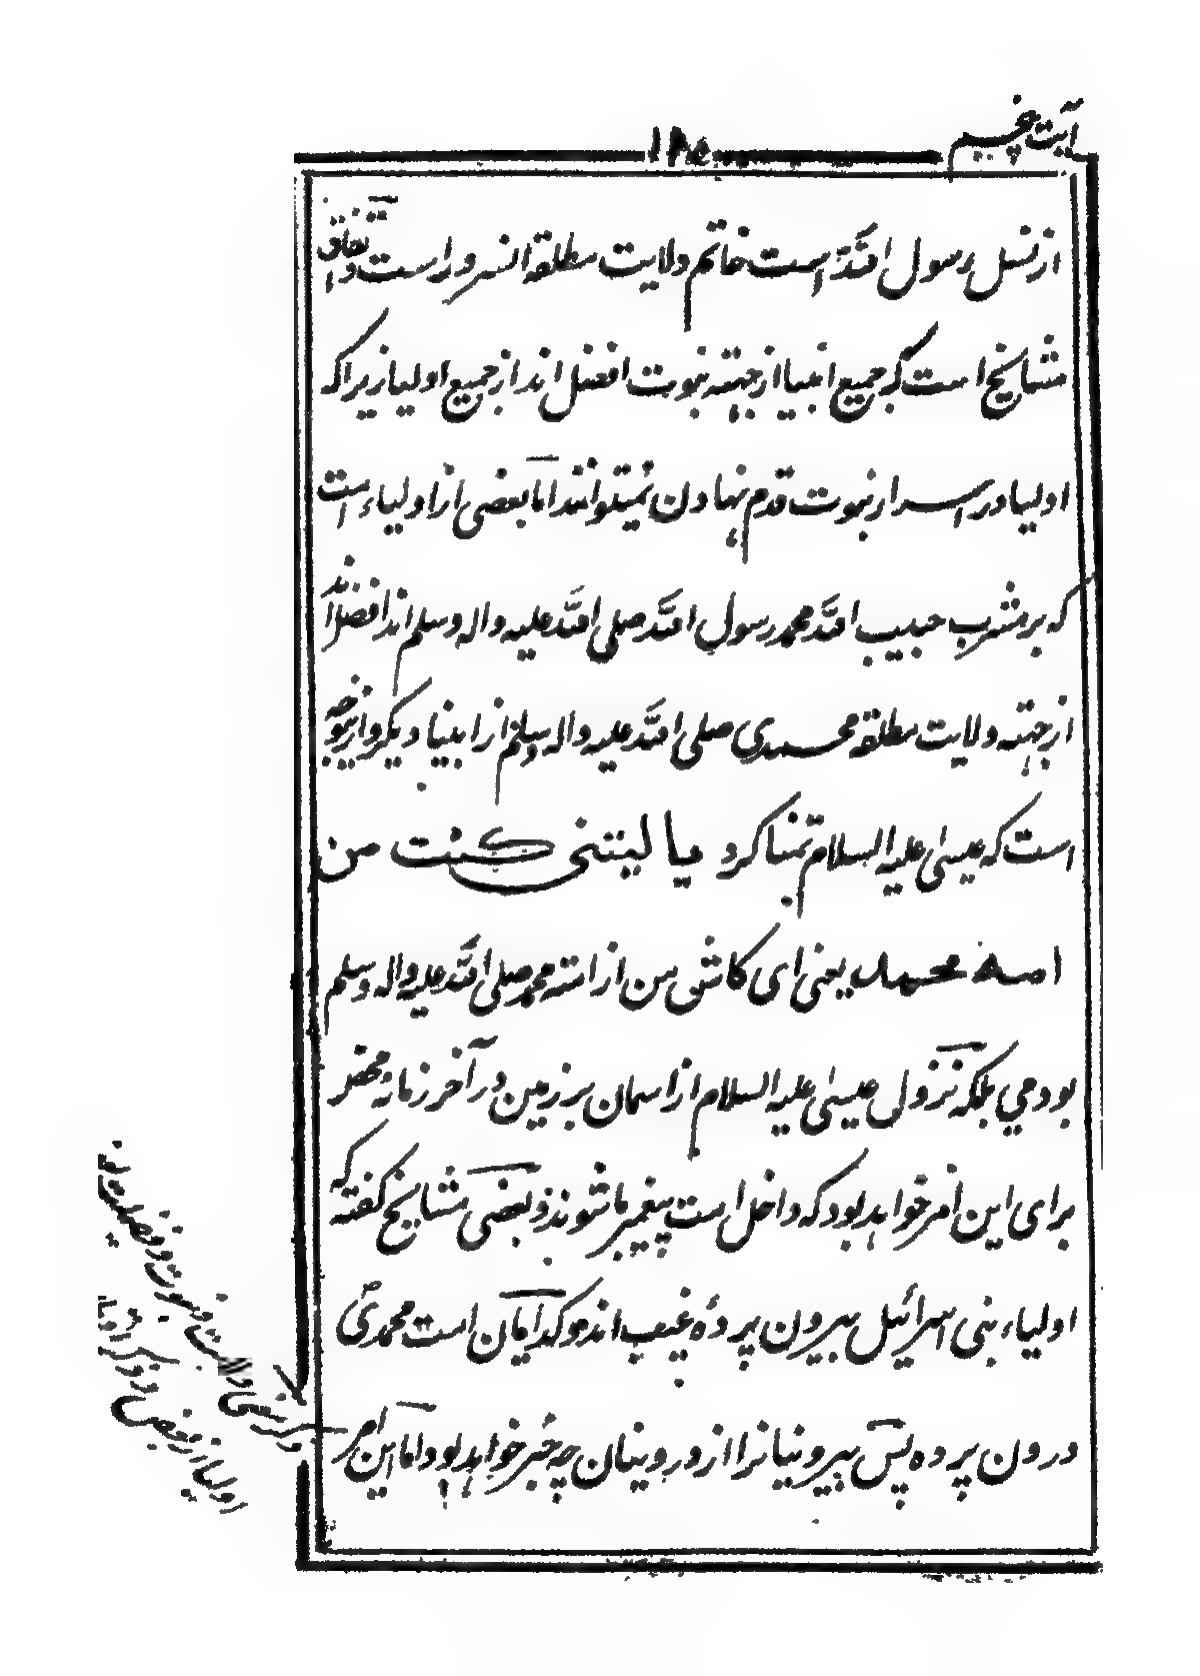 آیت پنجم
از نسل رسول اللّه است خاتم ولایت مطلقه انسرور است و اتفاق
مشایخ است که جمیع انبیا از جهته نبوت افضل اند از جمیع اولیا زیراکه
اولیا در اسرار نبوت قدم نهادن نمیتوانند امّا بعضی از اولیاء است
که بر مشرب حبیب اللّه محمد رسول اللّه صلی اللّه علیه واله وسلم اند افضل اند
از جهته ولایت مطلقه محمدی صلی اللّه علیه واله وسلم از انبیا دیگر و از ینوجه
است که عیسی علیه السلام تمنا کرد یا لیتنی کنت من
امة محمد یعنی ای کاش من از امته محمد صلی اللّه علیه واله وسلم
بودمي بلکه نزول عیسی علیه السلام از اسمان بر زمین در آخر زمانه محض
برای این امر خواهد بود که داخل است پیغمبر باشوند و بعضی مشایخ گفته که
اولیاء بنی اسرائیل بیرون پردۀ غیب اند وکدامان است محمدی
درون پرده پس بیرونیانرا از درونیان چه خبر خواهد بود اما این امر
دیگر یعنی ولایت و نبوت و فضیلت
اولیا از بعض دیگر